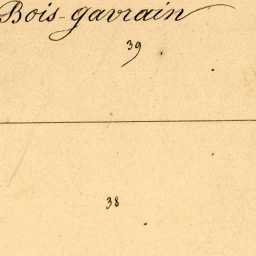 Bois-gavrain
39
38